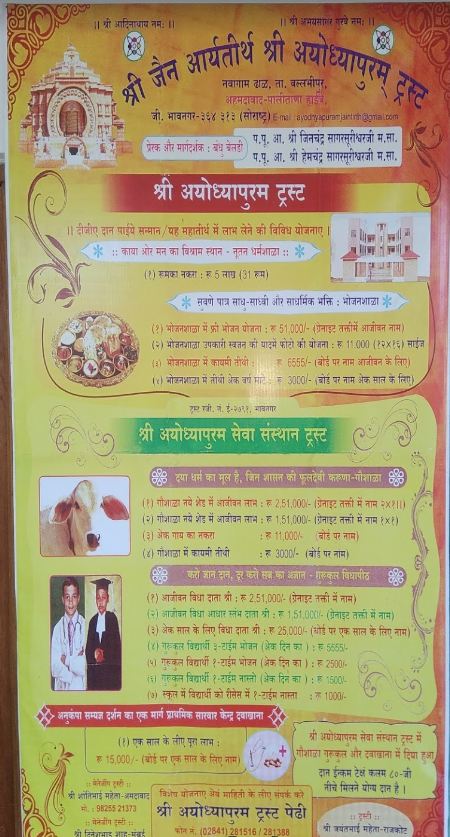 || श्री आदिनाथाय नमः ||
|| श्री अभयसागर गुरवे नमः ||
श्री जैन आर्यतीर्थ श्री अयोध्यापुरम् ट्रस्ट
नवागाम ढाळ, ता. वल्लभीपुर,
अहमदावाद-पालीताणा हाईवे,
जी. भावनगर-३६४ ३१३ (सौराष्ट्र) E-mail : ayodhyapuramjaintirth@gmail.com
प्रेरक और मार्गदर्शक : बंधु बेलडी
प.पू. आ. श्री जिनचंद्र सागरसूरीश्वरजी म.सा.
प.पू. आ. श्री हेमचंद्र सागरसूरीश्वरजी म.सा.
श्री अयोध्यापुरम ट्रस्ट
|| दीजीए दान पाईये सन्मान / यह महातीर्थ में लाभ लेने की विविध योजनाए |
:: काया ओर मन का विश्राम स्थान - नूतन धर्मशाळा ::
(१) रुमका नकरा : रु 5 लाख (31 रुम)
सुवर्ण पात्र साधु-साध्वी और साधर्मिक भक्ति : भोजनशाळा
(१) भोजनशाळा में फ्री भोजन योजना : रु 51,000/- (ग्रेनाइट तक्तीमें आजीवन नाम)
(२) भोजनशाळा उपकारी स्वजन की यादमें फोटो की योजना : रु 11,000 (१२×१६) साईज
(३) भोजनशाळा में कायमी तीथी : रु 6555/- (बोर्ड पर नाम आजीवन के लिए)
(४) भोजनशाळा में तीथी अेक वर्ष माटे : रु 3000/- (बोर्ड पर नाम अेक साल के लिए)
ट्रस्ट रजी. नं. ई-२०११, भावनगर
श्री अयोध्यापुरम सेवा संस्थान ट्रस्ट
दया धर्म का मूल है, जिन शासन की फूलदेवी करुणा-गौशाळा
(१) गौशाळा नये शेड में आजीवन लाभ : रु 2,51,000/- (ग्रेनाइट तक्ती में नाम २×१||)
(२) गौशाळा नये शेड में आजीवन लाभ : रु 1,51,000/- (ग्रेनाइट तक्ती में नाम १×१)
(३) अेक गाय का नकरा : रु 11,000/- (बोर्ड पर नाम)
(४) गौशाळा में कायमी तीथी : रु 3000/- (बोर्ड पर नाम)
करो ज्ञान दान, दूर करो सब का अज्ञान - गुरुकुल विधापीठ
(१) आजीवन विधा दाता श्री : रु 2,51,000/- (ग्रेनाइट तक्ती में नाम)
(२) आजीवन विधा आधार स्तंभ दाता श्री : रु 1,51,000/- (ग्रेनाइट तक्ती में नाम)
(३) अेक साल के लिए विधा दाता श्री : रु 25,000/- (बोर्ड पर एक साल के लिए नाम)
(४) गुरुकुल विद्यार्थी ३-टाईम भोजन (अेक दिन का) : रु 5555/-
(५) गुरुकुल विद्यार्थी १-टाईम भोजन (अेक दिन का) : रु 2500/-
(६) गुरुकुल विद्यार्थी १-टाईम नास्ता (अेक दिन का) : रु 1500/-
(७) स्कूल में विद्यार्थी को रीसेस में १-टाईम नास्ता : रु 1000/-
अनुकंपा सम्यज्ञ दर्शन का एक मार्ग प्राथमिक सारवार केन्द्र दवाखाना
(१) एक साल के लीए पूरा लाभ :
रु 15,000/- (बोर्ड पर एक साल के लिए नाम)
श्री अयोध्यापुरम सेवा संस्थान ट्रस्ट में
गौशाळा गुरुकुल और दवाखाना में दिया हुआ
दान ईन्कम टेक्ष कलम ८०-जी
नीचे मिलने योग्य दान है |
-:: मेनेजींग ट्रस्टी ::-
श्री शांतिभाई महेता-अमदावाद
मो. : 98255 21373
-:: मेनेजींग ट्रस्टी ::-
श्री दिनेशभाई शाह-मुंबई
विशेष योजनाए अेवं माहिती के लीए संपर्क करे
श्री अयोध्यापुरम ट्रस्ट पेढी
फोन नं. (02841) 281516 / 281388
-:: ट्रस्टी ::-
श्री जयंतभाई महेता-राजकोट